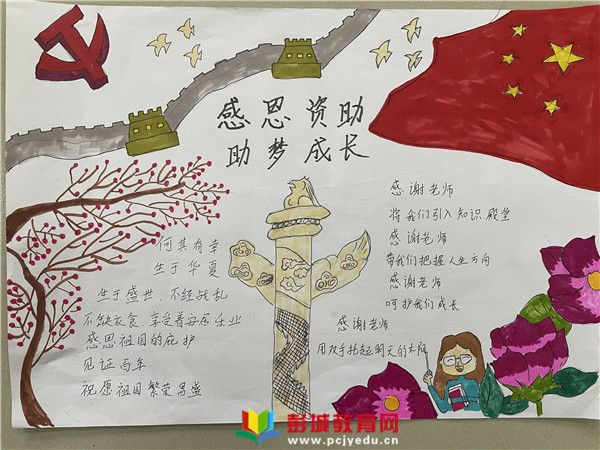 感恩资助
助梦成长
何其有幸
生于华夏
生于盛世、不经战乱
不缺衣食、享受着安居乐业
感恩祖国的庇护
见证百年
祝愿祖国繁荣昌盛
感谢老师
将我们引入知识殿堂
感谢老师
带我们把握人生方向
感谢老师
呵护我们成长
感谢老师
用双手托起明天的太阳
彭城教育网
www.pcjyedu.cn